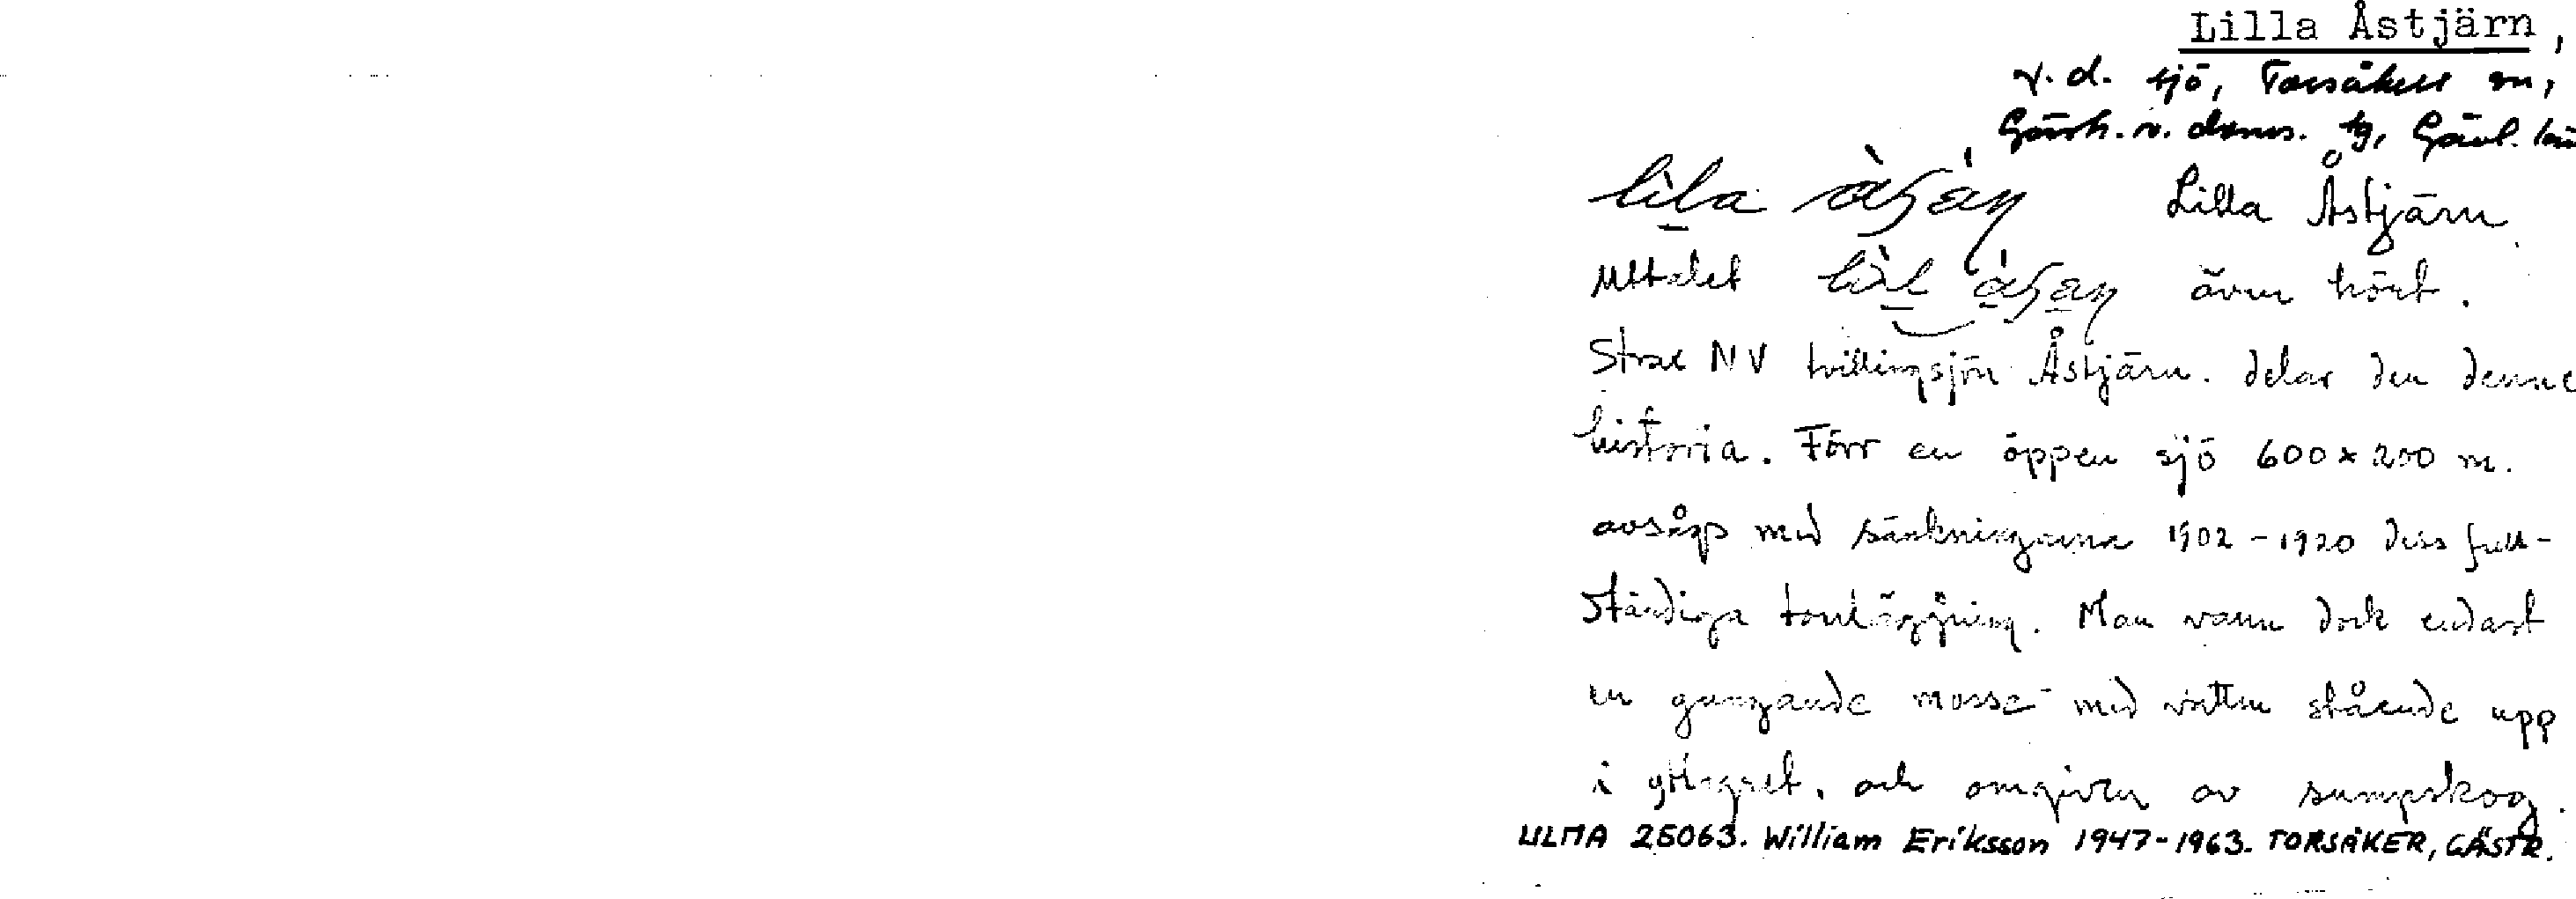 Lilla Åstjärn,
v.d. sjö, Torsåkers sn,
Gästr. v. doms. tg, Gävl. län
Lilla Åstjärn
Uttalet även hört.
Strax NV tvillingsjön Åstjärn. delar den denne
historia. Förr en öppen sjö 600x200 m.
avsågs med sänkningarna 1902-1920 dess full-
ständiga torrläggning. Man vann dock endast
en gungande mosse med vatten stående upp
i och omgiven av sumpskog.
ULMA 25063. William Eriksson 1947-1963. TORSÅKER, GÄSTR.